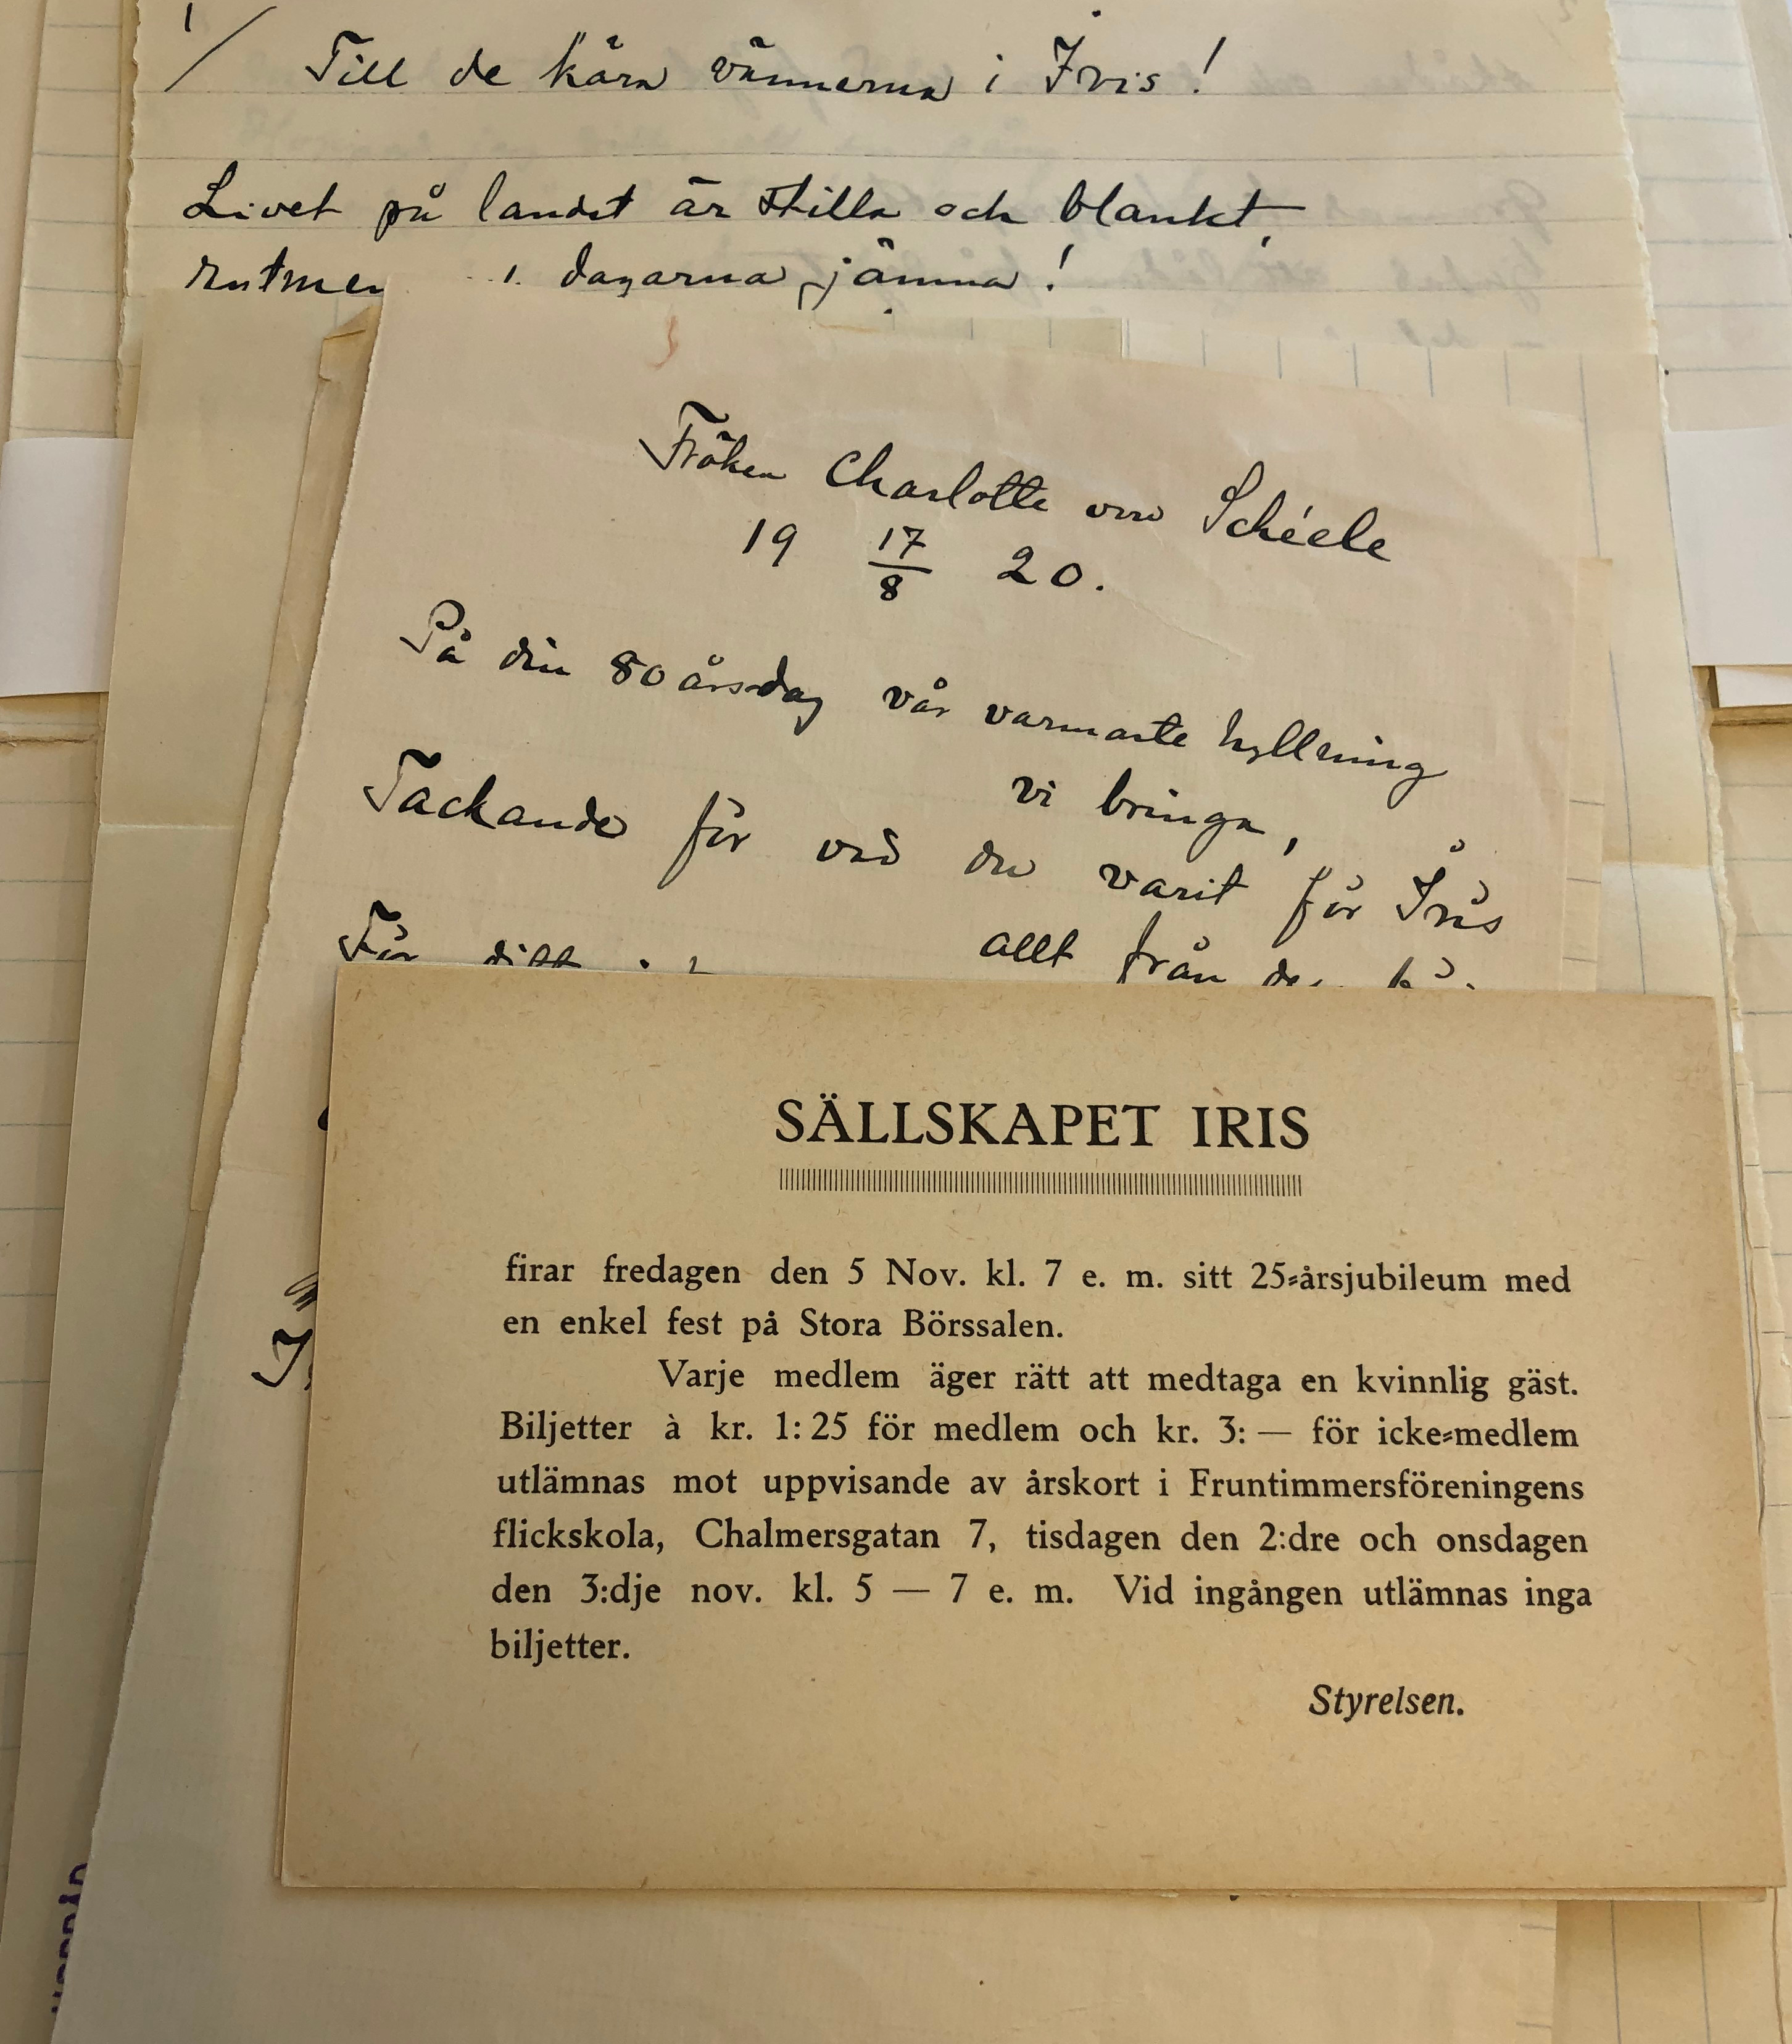 1/ Till de kära vännerna i Iris!
Livet på landet är stilla och blankt,
dagarna jämna!
Fröken Charlotte von Schéele
19 17/8 20.
På din 80 årsdag vår varmaste hyllning
vi bringa,
Tackande för vad du varit för Iris
allt från
För ditt
SÄLLSKAPET IRIS
firar fredagen den 5 Nov. kl. 7 e. m. sitt 25-årsjubileum med
en enkel fest på Stora Börssalen.
Varje medlem äger rätt att medtaga en kvinnlig gäst.
Biljetter à kr. 1:25 för medlem och kr. 3: — för icke-medlem
utlämnas mot uppvisande av årskort i Fruntimmersföreningens
flickskola, Chalmersgatan 7, tisdagen den 2:dre och onsdagen
den 3:dje nov. kl. 5 — 7 e. m. Vid ingången utlämnas inga
biljetter.
Styrelsen.